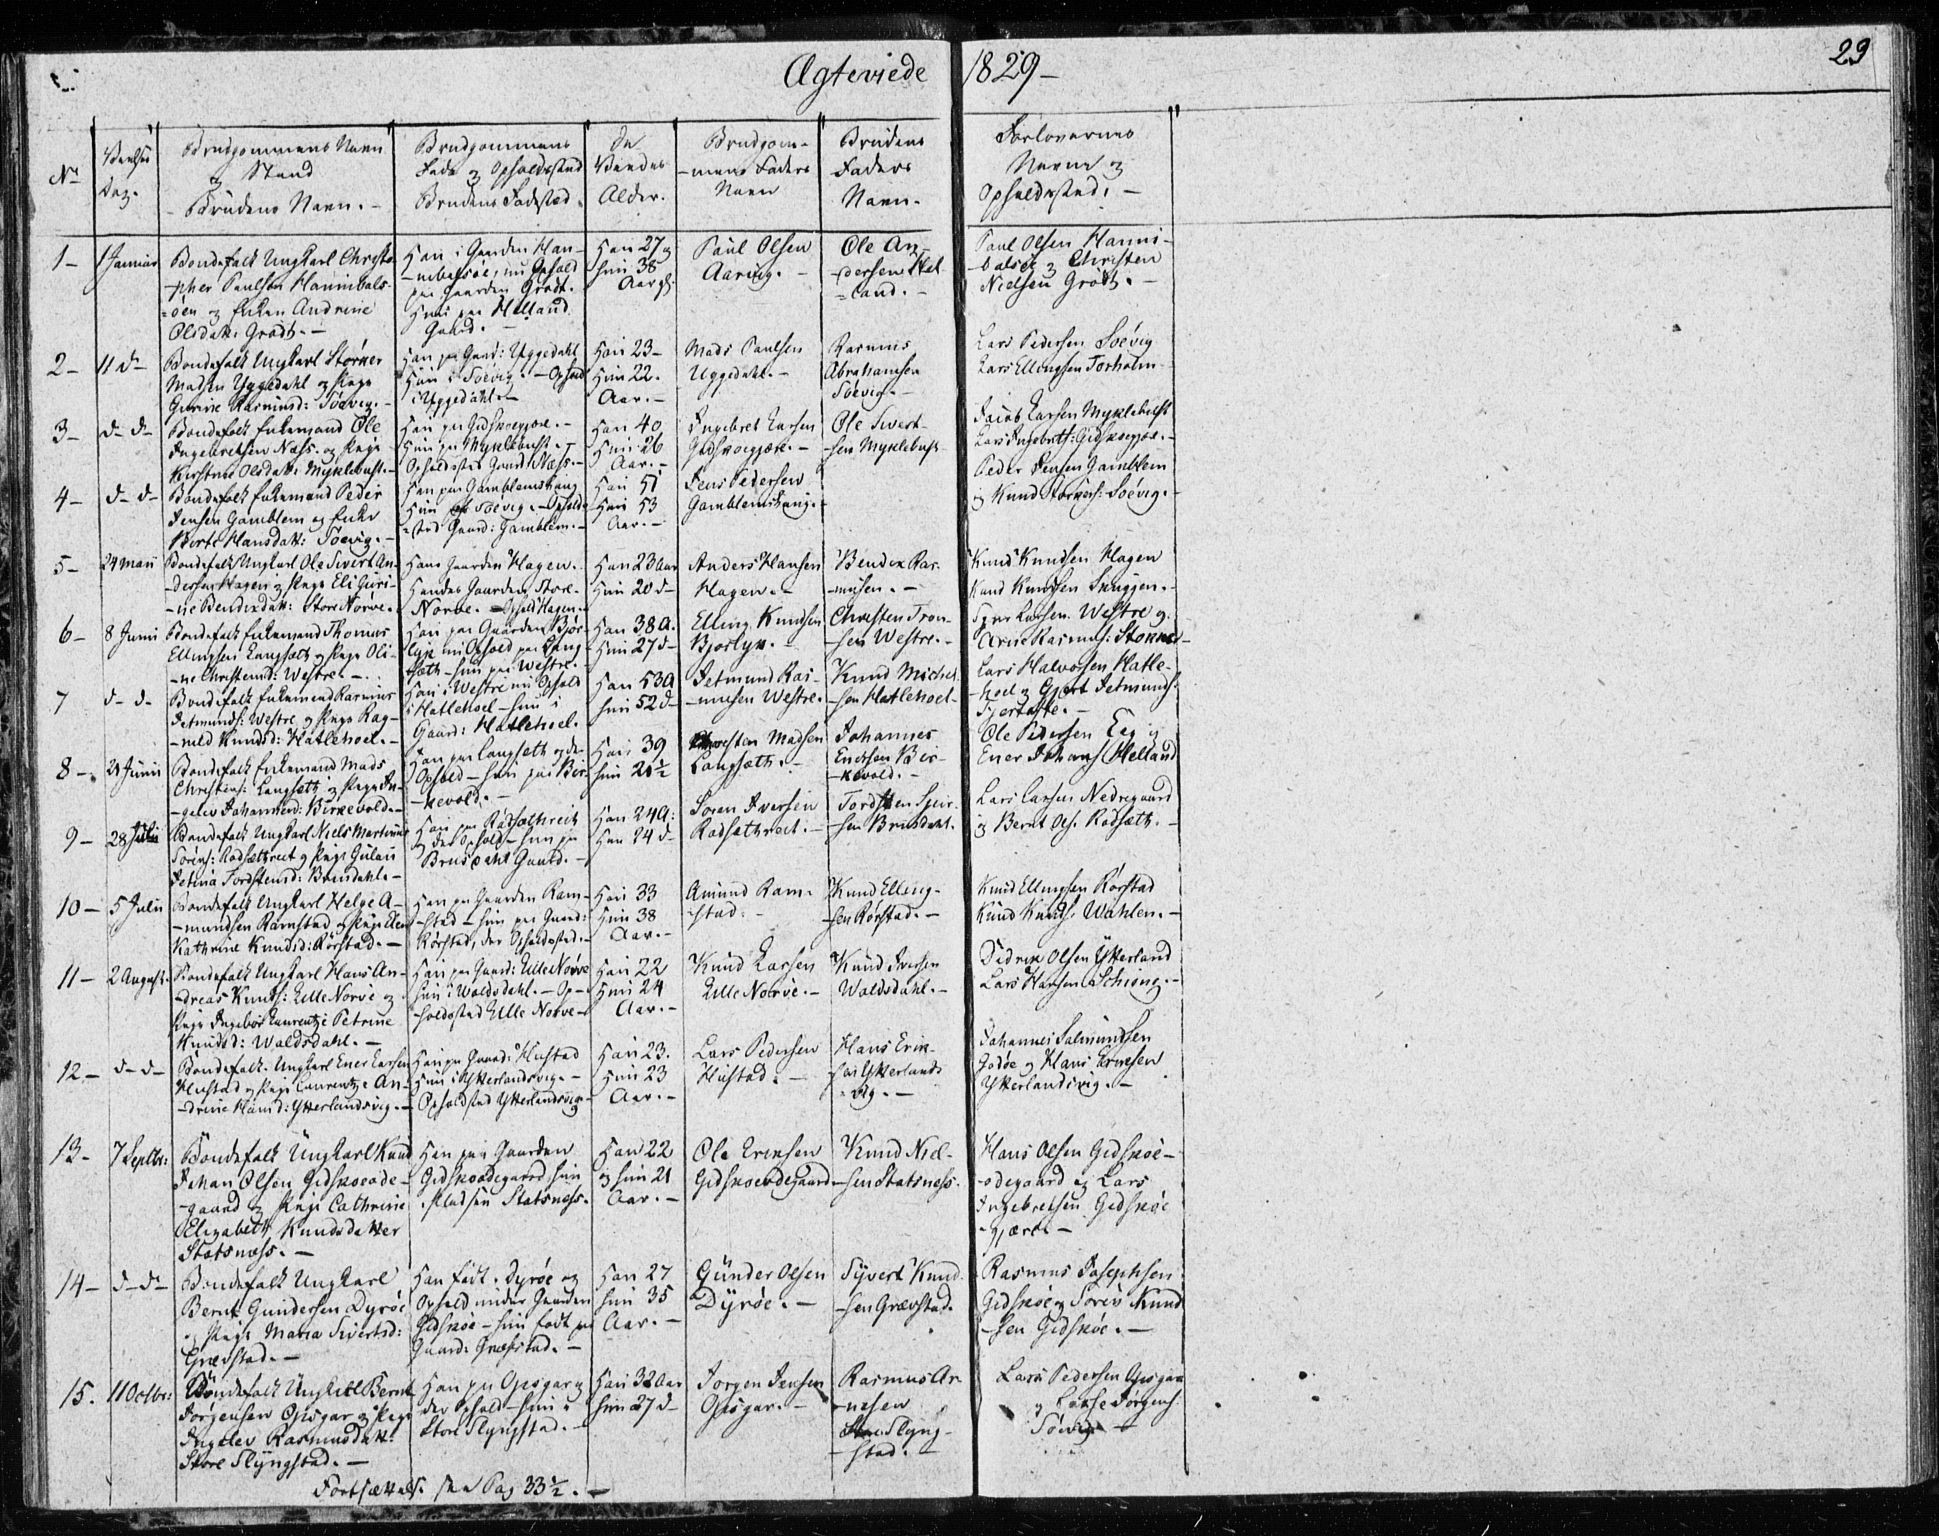 Ægteviede 1829 –
29
No
Vielses
Dag.
Brudgommens Navn
og Stand
Brudens Navn. –
Brudgommens
Føde og Opholdssted
Brudens Fødested.
De
Viedes
Alder.
Brudgom-
-mens Faders
Navn
Brudens
Faders
Navn. –
Forlovernes
Navne og
Opholdssted. –
1 –
1 Januar
Bondefolk Ungkarl Christo-
-pher Paulsen Hannibals-
-öen og Enken Andrine
Olsdatt: Grödt. –
Han i Gaarden Han-
-nibalsöe, nu Ophold
paa Gaarden Grödt.
Hun paa Helland
Gaard. –
Han 27 og
hun 38
Aar gl:
Paul Olsen
Aaring. –
Ole An-
-dersen Hel-
-land. –
Paul Olsen Hanni-
-balsöe og Christen
Nielsen Grödt. –
2 –
11 d–
Bondefolk Ungkarl Störker
Madsen Yggedahl og Pige
Gurine Rasmusd: Söevig. –
Han paa Gaard: Uggedahl
Hun i Söevig. – Ophold
i Uggedahl. –
Han 23 –
Hun 22.
Aar. –
Mads Paulsen
Uggedahl. –
Rasmus
Abrahamsen
Söevig. –
Lars Pedersen Söevig
Lars Ellingsen Torholm. –
3 –
d– d–
Bondefolk Enkemand Ole
Ingebretsen Næss. og Pige
Kirstine Olsdatt: Myklebust. –
Han paa Gidskoegjære. –
Hun paa Myklebust. –
Opholdssted Gaard Næss. –
Han 40
Hun 26
Aar. –
Ingebret Larsen
Gidskoegjære. –
Ole Sivert-
-sen Myklebust
Jacob Larsen Myklebust
Lars Ingebrets: Gidskoegjære. –
4 –
d– d–
Bondefolk Enkemand Peder
Jensen Gamblem og Enke
Berte Hansdatt: Söevig. –
Han paa Gamblemshaug
Hun paa Söevig. – Ophold-
-sted Gaard: Gamblem. –
Han 51
Hun 53
Aar. –
Jens Pedersen
Gamblemshaug. –
Peder Jensen Gamblem
og Knud Störkers: Söevig. –
5 –
24 Maii
Bondefolk Ungkarl Ole Sivert An-
-dersen Hagen og Pige Eli Guri-
-ne Bendixdatt: Store Nörve. –
Hans Gaarden Hagen.
Hendes Gaarden Store
Nörve. – Ophold Hagen. –
Han 23 Aar
Hun 20 d–
Anders Hansen
Hagen. –
Bendix Ras-
-musen. –
Knud Knudsen Hagen
Knud Knudsen Snuggen. –
6 –
8 Junii
Bondefolk Enkemand Thomas
Ellingsen Langsæth og Pige Oli-
-ne Christensd: Westre. –
Han paa Gaarden Björ-
-lyk nu Ophold paa Lang-
-sæth – hun paa Westre. –
Han 38 A.
Hun 27 d–
Elling Knudsen
Björlyk. –
Christen Tron-
-sen Westre. –
Larsen Westre og
Arne Rasmus: Stokke –
7
d– d–
Bondefolk Enkemand Rasmus
Jetmunds: Westre og Pige Rag-
-nild Knudsd: Hatlehoel. –
Han i Westre nu Ophold
i Hatlehoel – hun i
Gaard: Hatlehoel.
Han 53 A
hun 52 d–
Jetmund Ras-
-musen Westre. –
Knud Michel-
-sen Hatlehoel –
Lars Halvorsen Hatle-
-hoel og Gjert Jetmunds:
Fjertofte. –
8 –
21 Junii
Bondefolk Enkemand Mads
Christens: Langsæth og Pige In-
-gelev Johannesd: Birkevold. –
Han paa Langsæth og der
Ophold – hun paa Bir-
-kevold. –
Han 39
hun 21½
Christen Madsen
Langsæth. –
Johannes
Endresen Bir-
-kevold. –
Ole Pedersen Eeg og
Ener Johans: Helland
9 –
28 Julii
Bondefolk Ungkarl Niels Martinus
Sörens: Rödsæthreit og Pige Gulau
Petrina Tordstensd: Brusdahl. –
Han paa Rödsæthreit
og der Ophold – hun paa
Brusdahl Gaard. –
Han 24 A:
Hun 24 d
Sören Iversen
Rödsæthreit. –
Tordsten Syver-
-sen Brusdahl.
Lars Larsen Nedregaard
og Bernt Ols: Rödsæth. –
10 –
5 Julii
Bondefolk Ungkarl Helge A-
-mundsen Ramstad og Pige Elen
Kathrine Knudsd: Rörstad. –
Han paa Gaarden Ram-
-stad – hun paa Gaard:
Rörstad, der Opholdssted. –
Han 33
Hun 38
Aar. –
Amund Ram-
-stad. –
Knud Elling-
-sen Rörstad. –
Knud Ellingsen Rörstad
Knud Knuds: Wahlen. –
11 –
2 August.
Bondefolk Ungkarl Hans An-
-dreas Knuds: Lille Nörve og
Pige Ingebor Laurentze Petrine
Knudsd: Waldsdahl. –
Han paa Gaard: Lille Nörve
hun i Waldsdahl. – Op-
-holdssted Lille Nörve –
Han 22
Hun 24
Aar. –
Knud Larsen
Lille Nörve. –
Knud Iversen
Waldsdahl. –
Didrik Olsen Ytterland
Lars Hansen Schiong. –
12 –
d– d–
Bondefolk Ungkarl Ener Larsen
Hustad og Pige Laurentze An-
-drine Hansd: Ytterlandsvig. –
Han paa Gaard: Hustad
Hun i Ytterlandsvig. –
Opholdssted Ytterlandsvig –
Han 23.
Hun 23
Aar. –
Lars Pedersen
Hustad. –
Hans Erik-
-sen Ytterlands-
-vig. –
Johannes Salmundsen
Godöe og Hans Larsen
Ytterlandsvig. –
13 –
7 Septbr:
Bondefolk Ungkarl Knud
Johan Olsen Gidskoeöde-
-gaard og Pige Cathrine
Elizabeth Knudsdatter
Statsnæss. –
Han paa Gaarden
Gidskoeödegaard hun
i Pladsen Statsnæss.
Han 22
og hun 21
Aar. –
Ole Eriksen
Gidskoeödegaard
Knud Niel-
-sen Statsnæss.
Hans Olsen Gidskoe-
-ödegaard og Lars
Ingebretsen Gidskoe-
-gjære –
14 –
d– d–
Bondefolk Ungkarl
Bernt Gundersen Dyröe
og Pige Maria Sivertsd:
Grævstad. –
Han födt i Dyröe og
Ophold under Gaarden
Gidskoe – hun födt paa
Gaard: Grævstad. –
Han 27
hun 35
Aar. –
Gunder Olsen
Dyröe. –
Syvert Knud-
-sen Grævstad.
Rasmus Josephsen
Gidskoe og Sören Knud-
-sen Gidskoe. –
15.
11 Octbr:
Bondefolk Ungkarl Bernt
Jörgensen Opsgar og Pige
Ingelev Rasmusdatt:
Store Slyngstad. –
Han paa Opsgar og
der Ophold – hun i
Store Slyngstad. –
Han 32 Aar
hun 27 d–
Jörgen Jensen
Opsgar. –
Rasmus Ar-
-nesen
Store Slyng-
-stad. –
Lars Pedersen Opsgar
og Lasse Jörgens:
Söevig –
Fortsættelse see Pag 33½. –